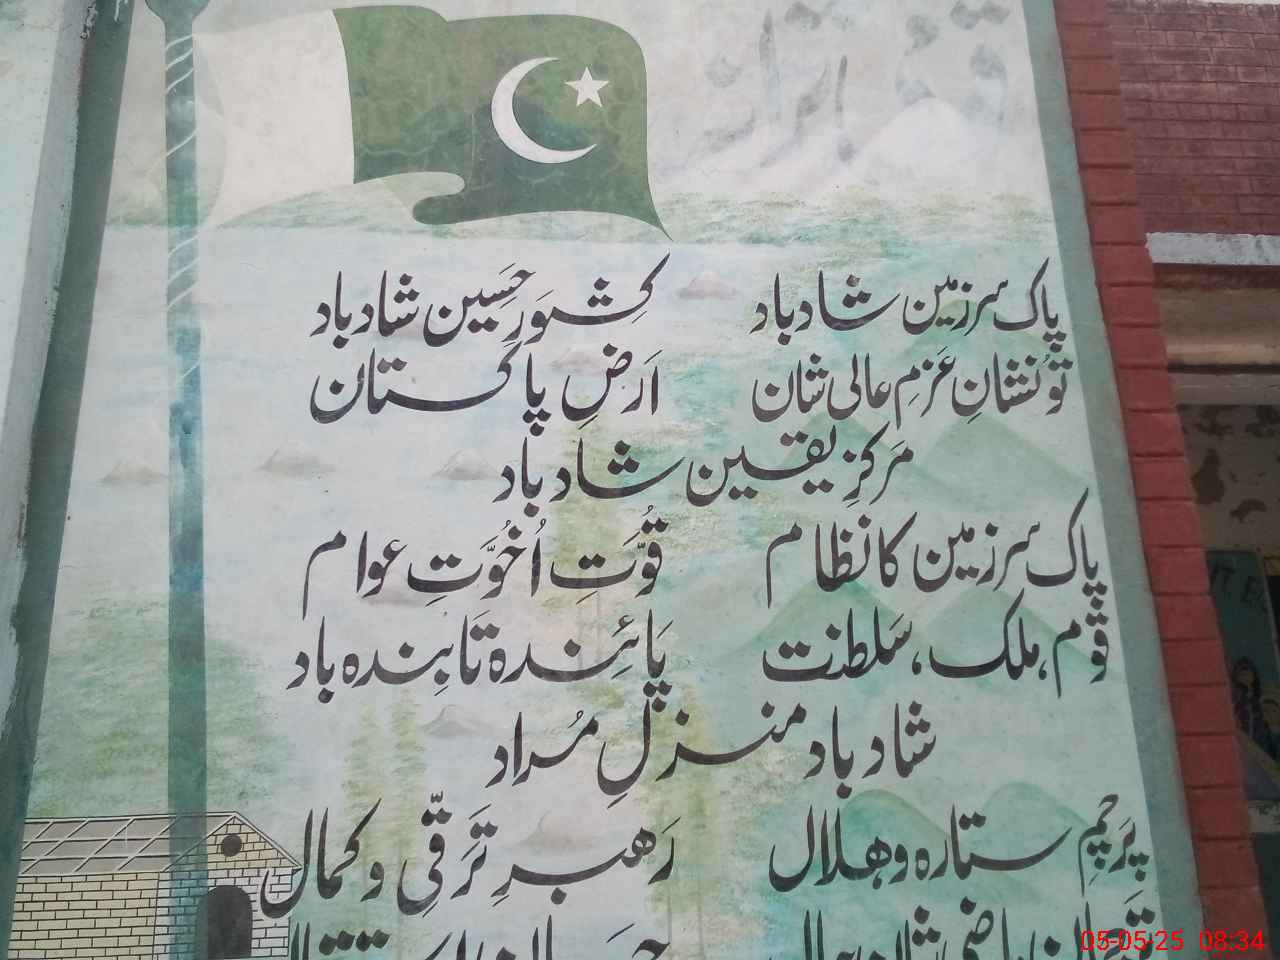 قومی ترانہ
پاک سرزمین شادباد کِشوَرِ حَسِین شادباد
تُو نشانِ عَزمِ عالی شان اَرضِ پاکستان
مَرکزِ یقین شادباد
پاک سرزمین کا نظام قُوَّتِ اُخُوَّتِ عوام
قوم، ملک، سَلطنت پَائِندہ تَابِندہ باد
شادباد منزلِ مُراد
پرَچمِ ستارہ و ھلال رَھبرِ تَرَقّی و کمال
05-05-25 08:34